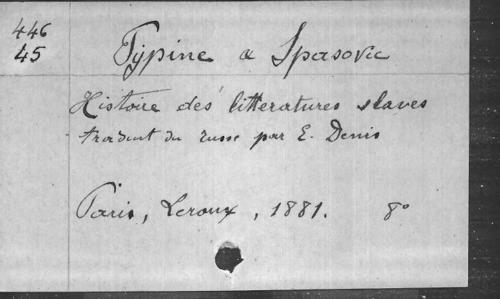 446
45
Pypine a Spasovic
Histoire des litteratures slaves
traduit du russe par E. Denis
Paris, Leroux, 1881. 8°